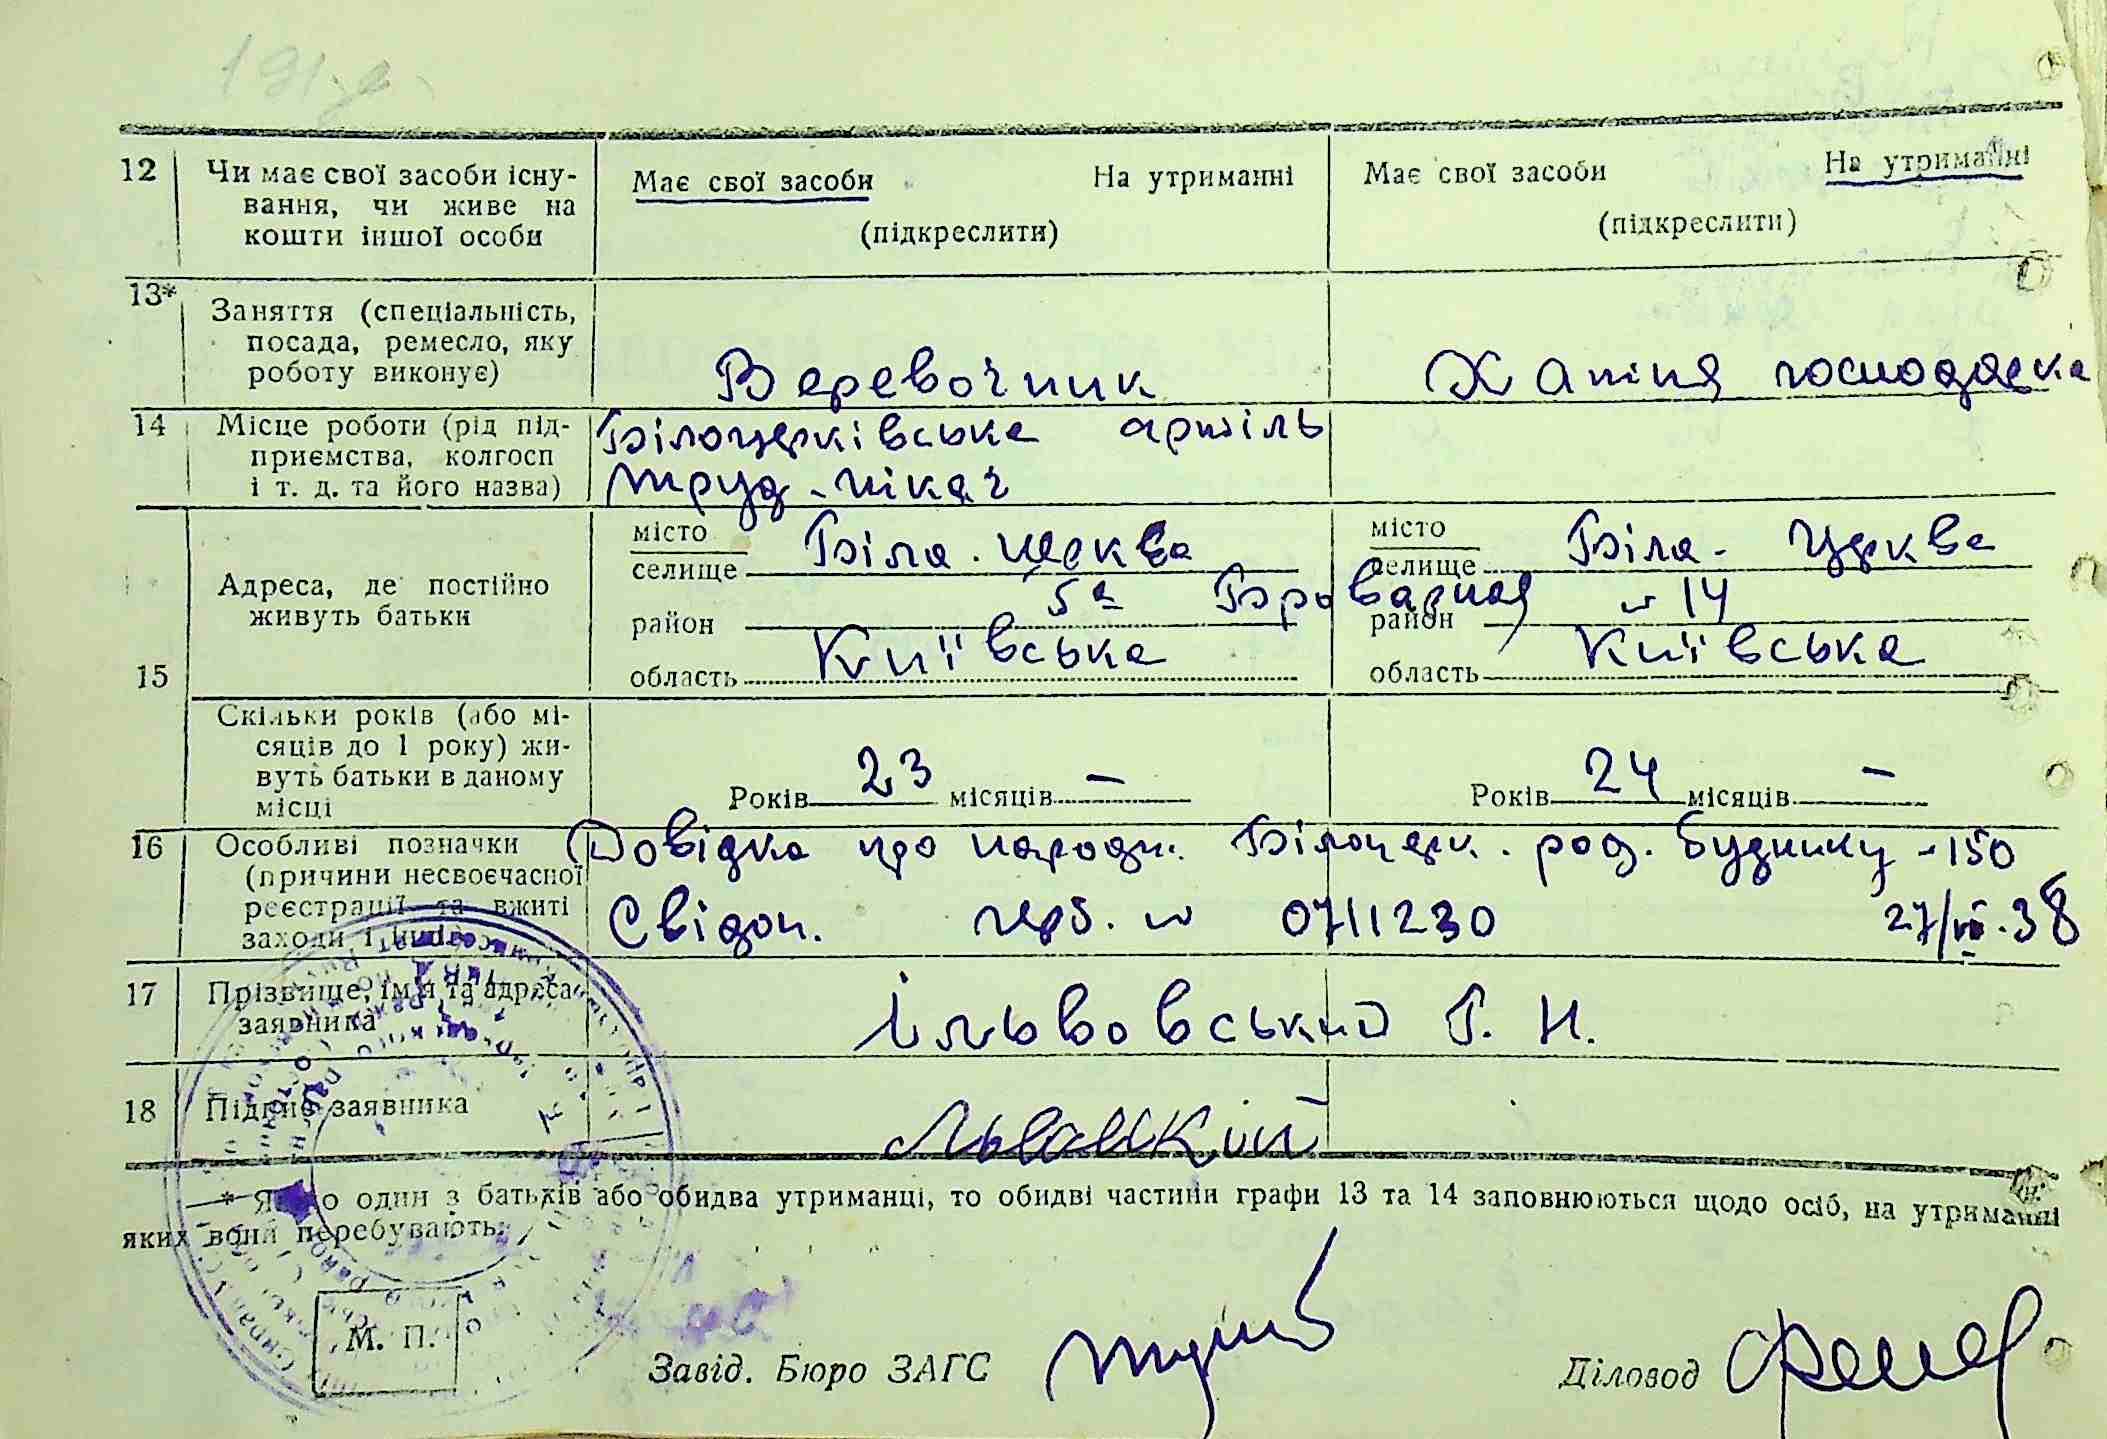 12 Чи має свої засоби існу-
вання, чи живе на
кошти іншої особи
Має свої засоби На утриманні
(підкреслити)
Має свої засоби На утриманні
(підкреслити)
13* Заняття (спеціальність,
посада, ремесло, яку
роботу виконує)
Веревочник
Хатня господарка
14 Місце роботи (рід під-
приємства, колгосп
і т. д. та його назва)
Білоцерківська артіль
труд.
15
Адреса, де постійно
живуть батьки
місто Біла-церква
селище
5а Броварная № 14
район
область Київська
місто Біла-Церква
селище
район
область Київська
Скільки років (або мі-
сяців до 1 року) жи-
вуть батьки в даному
місці
Років 23 місяців —
Років 24 місяців —
16 Особливі позначки
(причини несвоєчасної
реєстрації та вжиті
заходи і інш.)
Довідка про народж. Білоцерк. род. будинку -150
Свідоц. герб. № 0711230 27/VII.38
17 Прізвище, ім'я та адреса
заявника
Ільвовський Г. Н.
18 Підпис заявника
* Якщо один з батьків або обидва утриманці, то обидві частини графи 13 та 14 заповнюються щодо осіб, на утриманні
яких вони перебувають.
М. П.
Завід. Бюро ЗАГС
Діловод